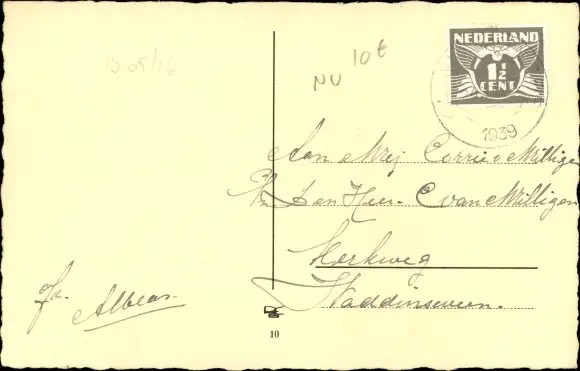 10 05/16
NU
10t
NEDERLAND
1½
CENT
1939
Aan Mej Corrie v Willigen
p/a Den Heer. C van Willigen
Kerkweg
Waddinxveen.
Fa. Albeas.
10